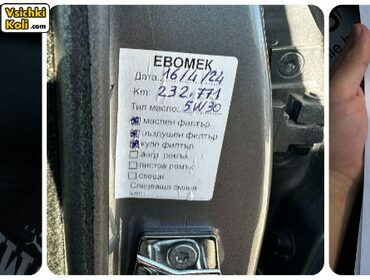 Vsichki
Koli.com
ЕВОМЕК
Дата: 16/4/24
Km: 232.771
Тип масло: 5W30
маслен филтър
въздушен филтър
купе филтър
ангр. ремък
пистов ремък
свещи
Следваща смяна
km: